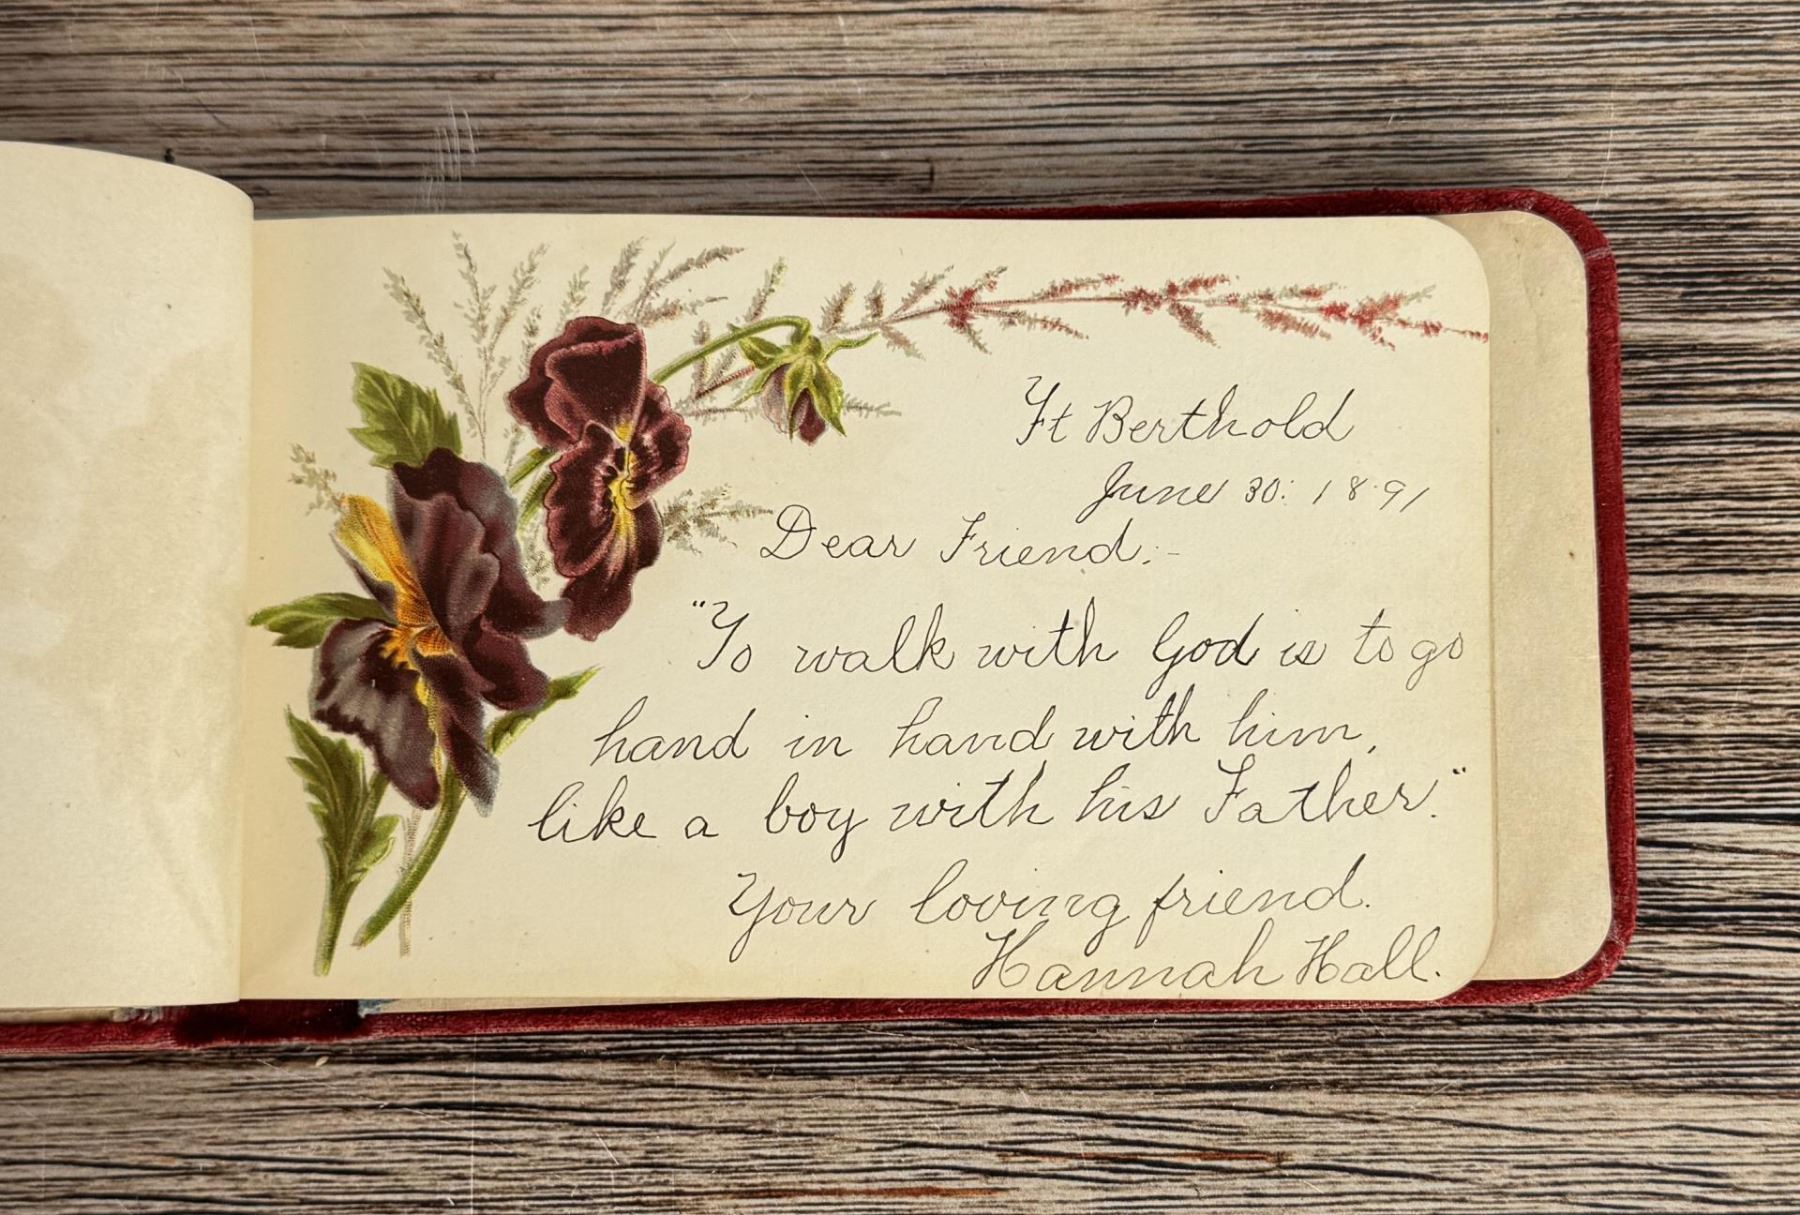 Ft Berthold
June 30: 1891
Dear Friend:-
"To walk with God is to go
hand in hand with him,
like a boy with his Father."
Your loving friend.
Hannah Hall.